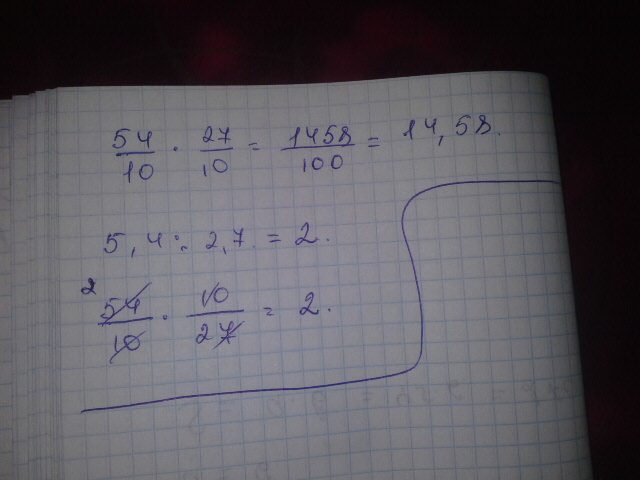 54/10 · 27/10 = 1458/100 = 14,58.
5,4 : 2,7. = 2.
2 54/10 · 10/27 = 2.